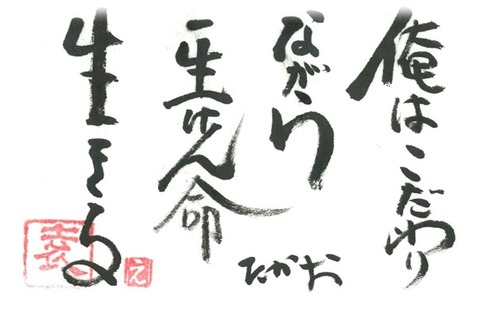 俺はこだわり
ながら
一生けん命
生きる
たかお
え